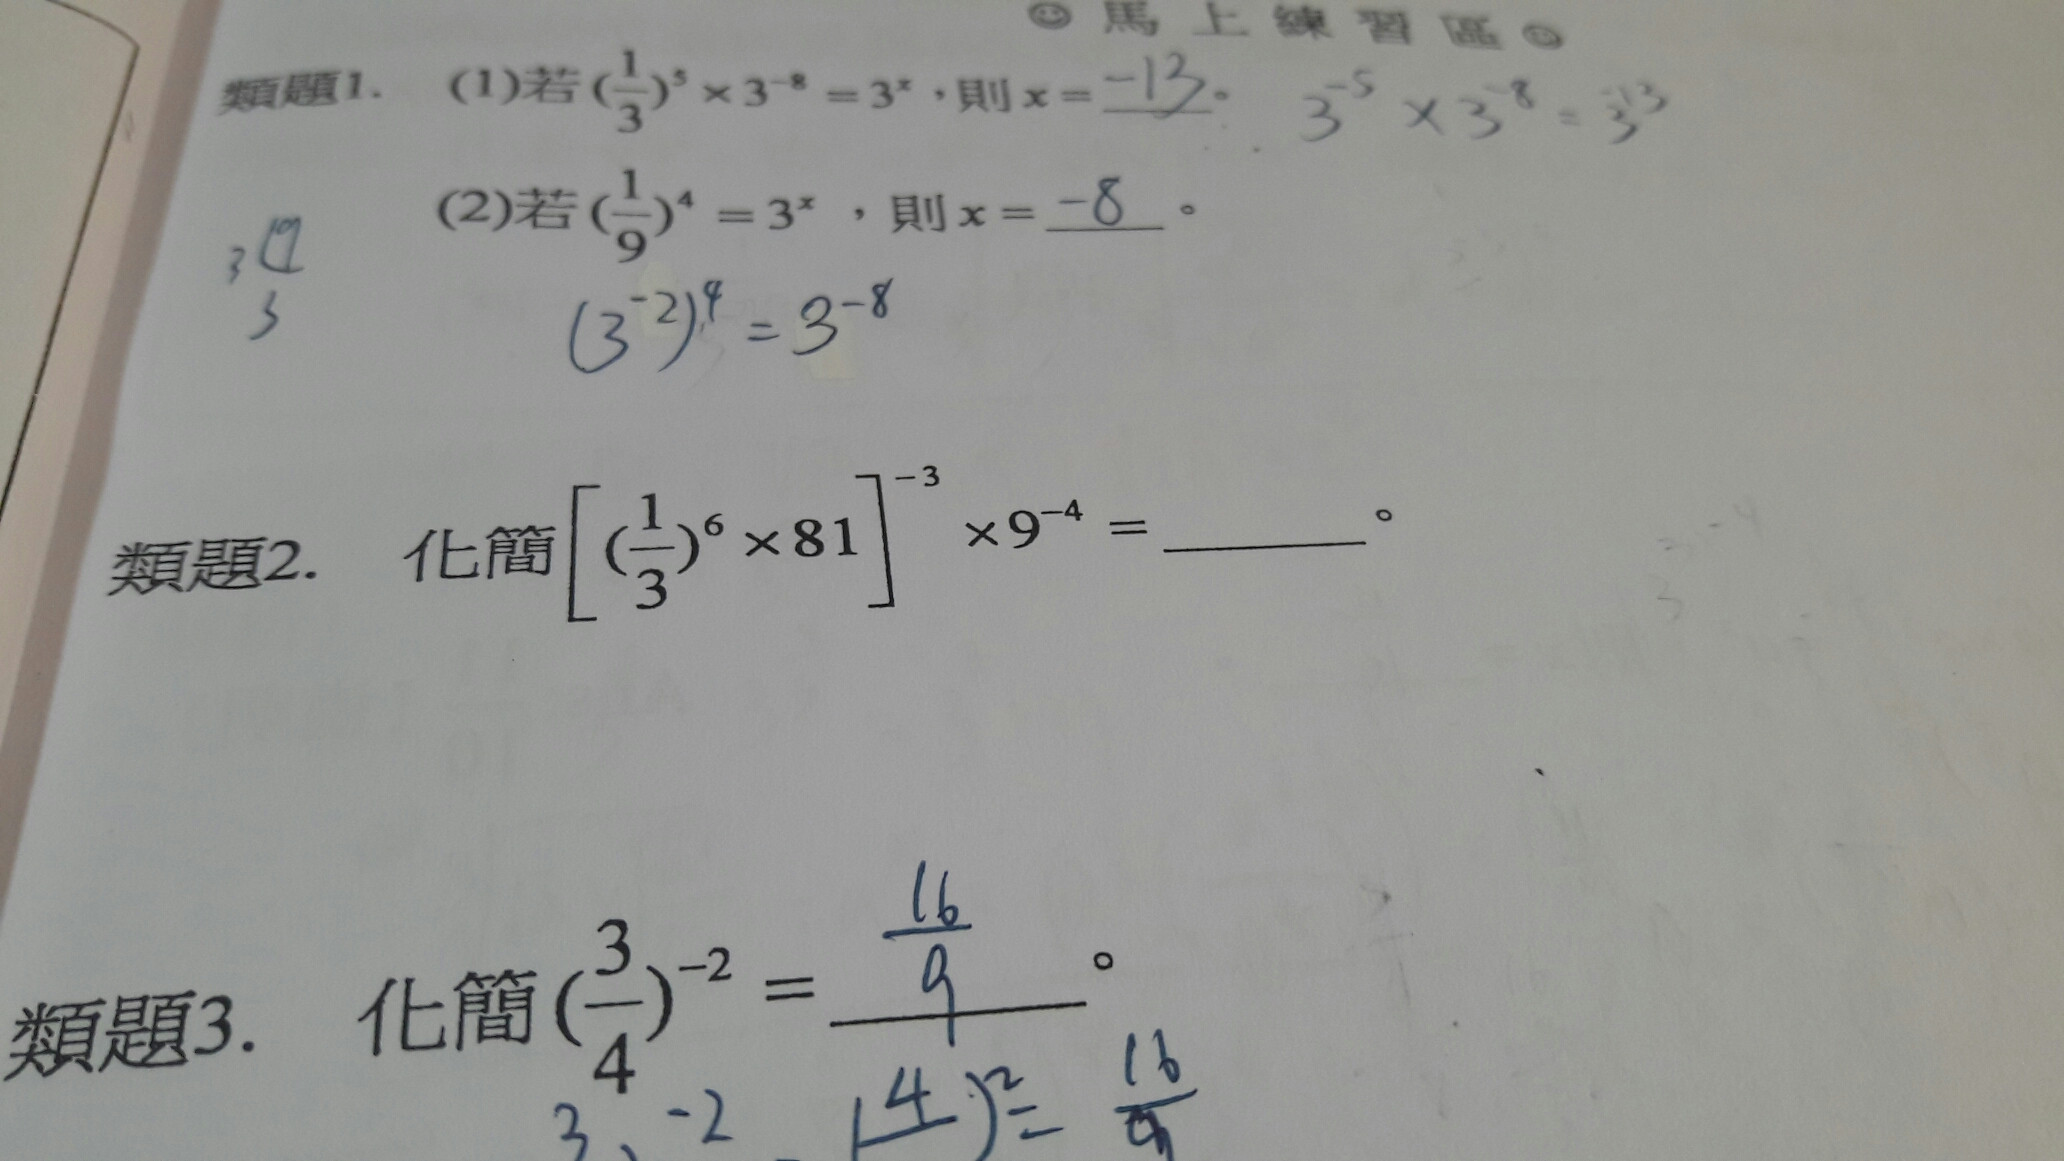 ☺ 馬上練習區 ☺
類題1. (1)若(1/3)⁵×3⁻⁸=3ˣ,則x=-13。 3⁻⁵×3⁻⁸=3⁻¹³
(2)若(1/9)⁴=3ˣ,則x=-8。
3 9
3
(3⁻²)⁴=3⁻⁸
類題2. 化簡[(1/3)⁶×81]⁻³×9⁻⁴=______。
類題3. 化簡(3/4)⁻²=16/9。
3 -2 (4 )²=16/9